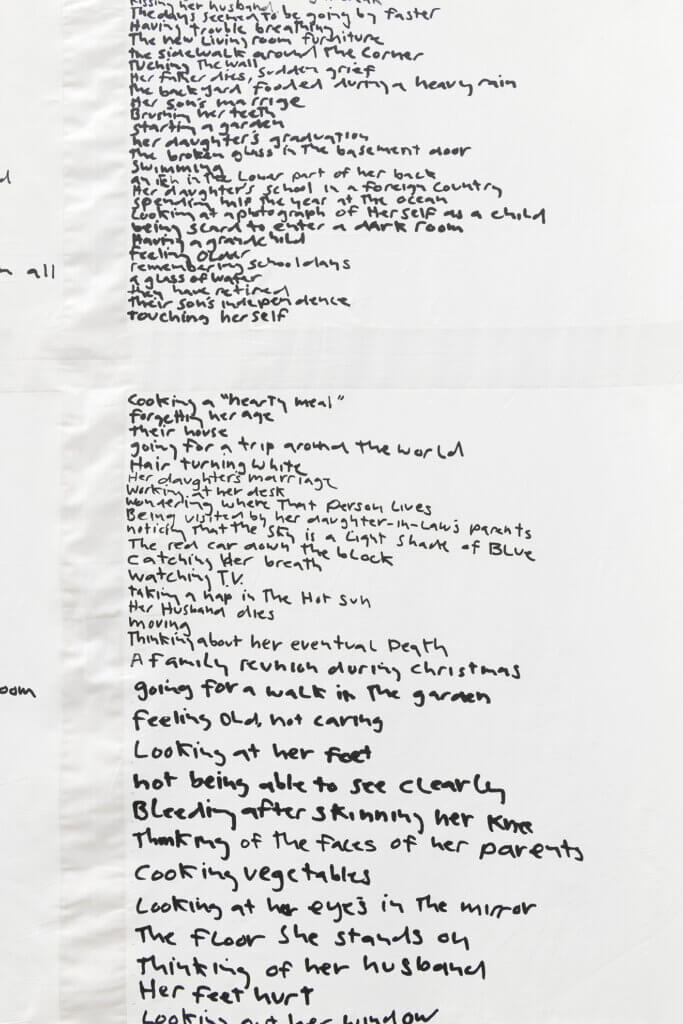 Kissing her husband
The days seemed to be going by faster
Having trouble breathing
The new Living room furniture
the sidewalk around The Corner
Tuching The wall
Her father dies, sudden grief
The backyard fooded during a heavy rain
Her son's marrige
Brushing her teeth
starting a garden
her daughter's graduation
The broken glass in The basement door
Swimming
an itch in The Lower part of her back
Her daughter's school in a foreign country
spending half the year at The ocean
Looking at a photograph of Herself as a child
being scard to enter a dark room
Having a grandchild
feeling older
remembering school days
a glass of water
they have retired
Their son's independence
touching herself
m all
Cooking a "hearty meal"
forgetting her age
their house
going for a trip around The world
Hair turning white
Her daughter's marriage
Working at her desk
wondering where That person Lives
Being visited by her daughter-in-Law's parents
noticing That the sky is a Light shade of BLue
The red car down the block
catching Her breath
watching T.V.
taking a nap in The Hot sun
Her Husband dies
moving
Thinking about her eventual Death
A family reunion during christmas
going for a walk in The garden
oom
feeling Old, not caring
Looking at her feet
not being able to see clearly
Bleeding after skinning her knee
Thinking of The faces of her parents
Cooking vegetables
Looking at her eyes in The mirror
The floor She stands on
Thinking of her husband
Her feet hurt
Looking out her window